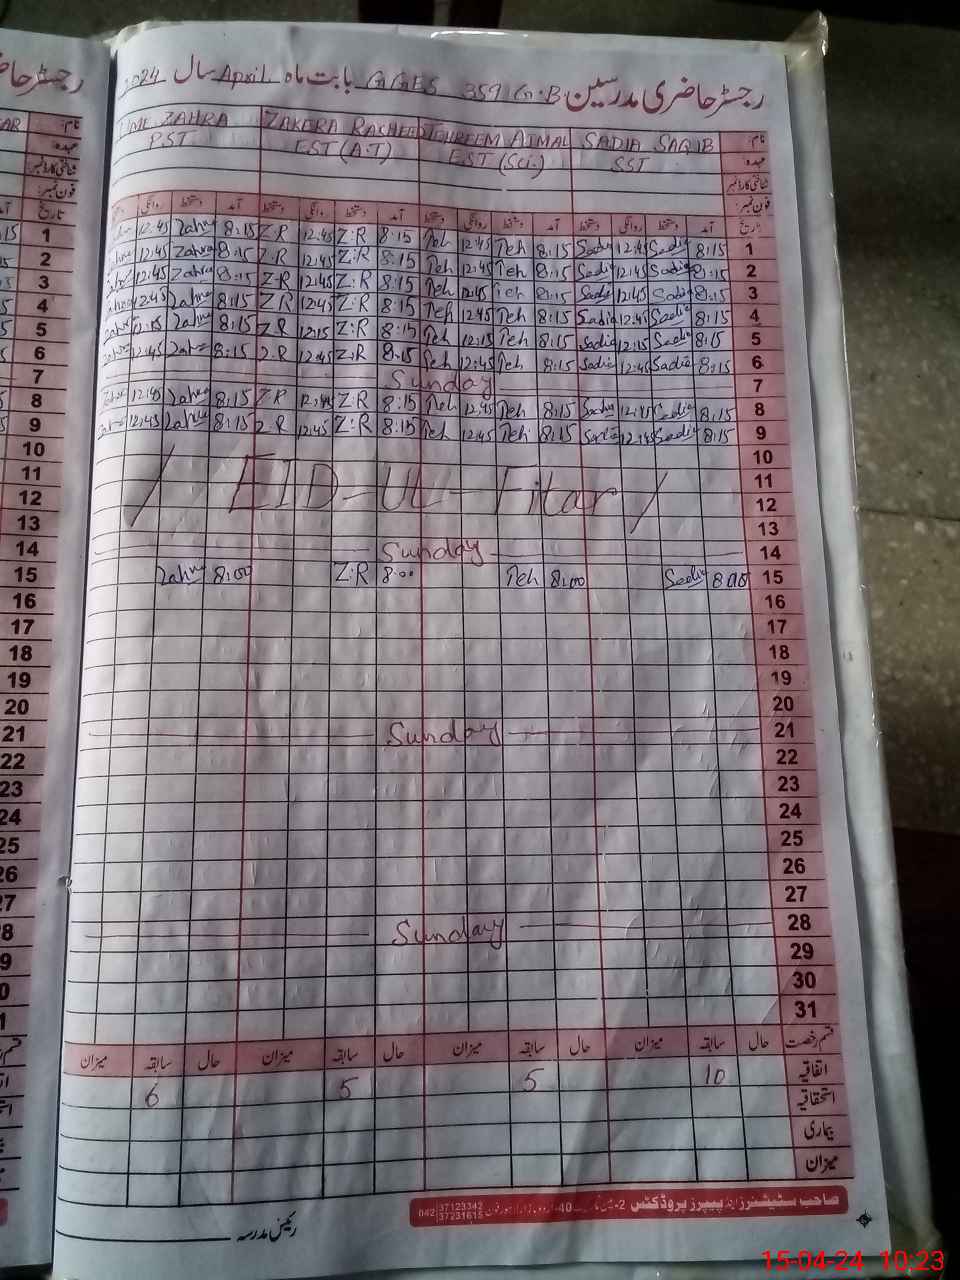 رجسٹر حاضری مدرسین G.G.E.S 359 G.B بابت ماہ April سال 2024
نام: SADIA SAQIB TEHREEM AJMAL ZAKERA RASHEED ZAHRA
عہدہ: SST EST (Sci.) EST (A.T) PST
شناختی کارڈ نمبر:
فون نمبر:
تاریخ آمد دستخط روانگی دستخط آمد دستخط روانگی دستخط آمد دستخط روانگی دستخط آمد دستخط روانگی دستخط
1 8:15 Sadia 12:45 Sadia 8:15 Teh 12:45 Teh 8:15 Z:R 12:45 Z.R 8:15 Zahra 12:45
2 8:15 Sadia 12:45 Sadia 8:15 Teh 12:45 Teh 8:15 Z:R 12:45 Z.R 8:15 Zahra 12:45
3 8:15 Sadia 12:45 Sadia 8:15 Teh 12:45 Teh 8:15 Z:R 12:45 Z.R 8:15 Zahra 12:45
4 8:15 Sadia 12:45 Sadia 8:15 Teh 12:45 Teh 8:15 Z:R 12:45 Z R 8:15 Zahra 12:45
5 8:15 Sadia 12:15 Sadia 8:15 Teh 12:15 Teh 8:15 Z:R 12:15 Z.R 8:15 Zahra 12:15
6 8:15 Sadia 12:45 Sadia 8:15 Teh 12:45 Teh 8:15 Z:R 12:45 Z.R 8:15 Zahra 12:45
7 Sunday
8 8:15 Sadia 12:45 Sadia 8:15 Teh 12:45 Teh 8:15 Z:R 12:45 Z R 8:15 Zahra 12:45
9 8:15 Sadia 12:45 Sadia 8:15 Teh 12:45 Teh 8:15 Z:R 12:45 Z.R 8:15 Zahra 12:45
10
11 / EID-UL-Fitar /
12
13
14 Sunday
15 8:00 Sadia 8:00 Teh 8:00 Z:R 8:00 Zahra
16
17
18
19
20
21 Sunday
22
23
24
25
26
27
28 Sunday
29
30
31
قسم رخصت حال سابقہ میزان حال سابقہ میزان حال سابقہ میزان حال سابقہ میزان
اتفاقیہ 10 5 5 6
استحقاقیہ
بیماری
میزان
صاحب سٹیشنرز اینڈ پیپرز پروڈکٹس
042 37123342
37231615
رئیس مدرسہ
15-04-24 10:23